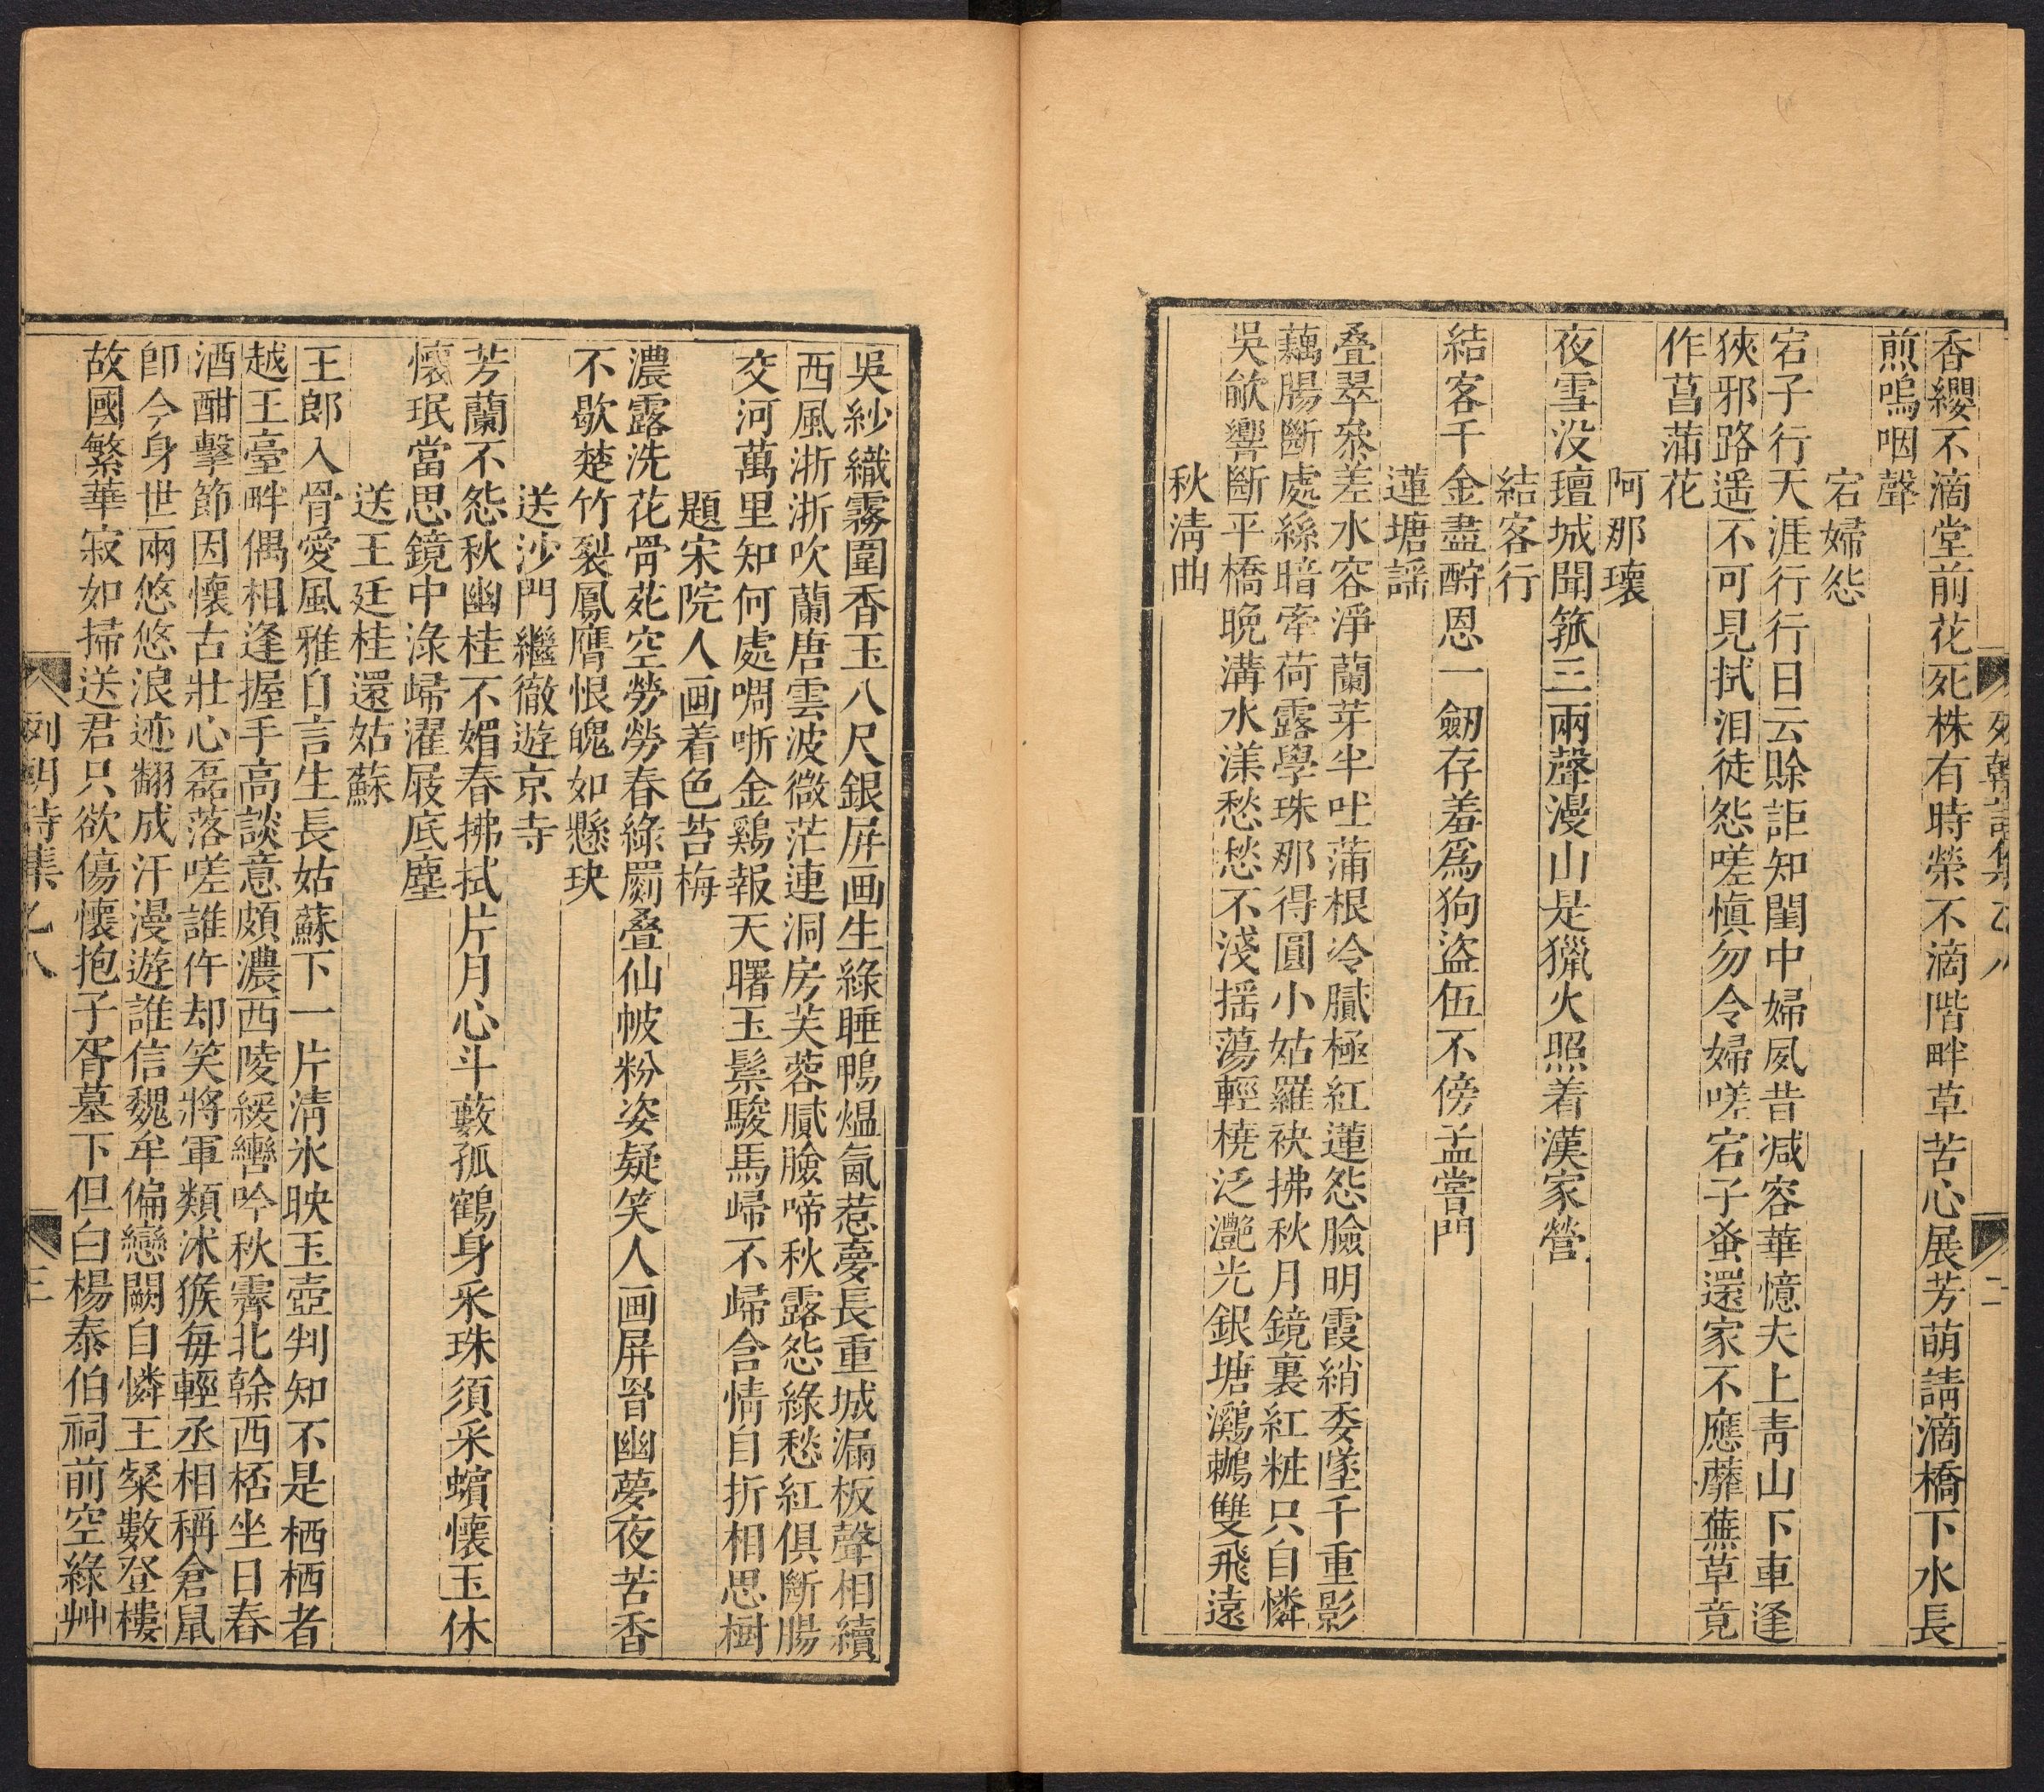 香纓不滴堂前花死株有時榮不滴階畔草苦心展芳萌請滴橋下水長
煎嗚咽聲
宕婦怨
宕子行天涯行行日云賒詎知閨中婦夙昔减容華憶夫上靑山下車逢
狹邪路遥不可見拭泪徒怨嗟愼勿令婦嗟宕子蚤還家不應蘼蕪草竟
作菖蒲花
阿那瓌
夜雪没璮城聞箛三兩聲漫山是獵火照着漢家營
結客行
結客千金盡酧恩一劒存羞爲狗盜伍不傍孟嘗門
蓮塘謡
叠翠叅差水容淨蘭芽半吐蒲根冷膩極紅蓮怨臉明霞綃委墜千重影
藕腸斷處絲暗牽荷露學珠那得圓小姑羅袂拂秋月鏡裏紅粧只自憐
吳歈響斷平橋晚溝水渼愁愁不淺揺蕩輕橈泛灔光銀塘鸂鶒雙飛遠
秋淸曲
列朝詩集 乙八
二
吳紗織霧圍香玉八尺銀屏画生綠睡鴨熅氤惹夢長重城漏板聲相續
西風浙浙吹蘭唐雲波微茫連洞房芙蓉膩臉啼秋露怨綠愁紅俱斷腸
交河萬里知何處啁哳金鷄報天曙玉鬃駿馬歸不歸含情自折相思樹
題宋院人画着色苔梅
濃露洗花骨苑空勞勞春綠罽叠仙帔粉姿疑笑人画屏晉幽夢夜苦香
不歇楚竹裂鳳膺恨魄如懸玦
送沙門繼徹遊京寺
芳蘭不怨秋幽桂不媚春拂拭片月心斗藪孤鶴身采珠須采蠙懷玉休
懷珉當思鏡中淥歸濯屐底塵
送王廷桂還姑蘇
王郎入骨愛風雅自言生長姑蘇下一片淸氷映玉壺判知不是栖栖者
越王臺畔偶相逢握手高談意頗濃西陵緩轡吟秋霽北榦西桮坐日舂
酒酣擊節因懷古壯心磊落嗟誰仵却笑將軍類沐猴每輕丞相稱倉鼠
卽今身世兩悠悠浪迹翻成汗漫遊誰信魏牟偏戀闕自憐王粲數登樓
故國繁華寂如掃送君只欲傷懷抱子胥墓下但白楊泰伯祠前空綠艸
列朝詩集 乙八
三